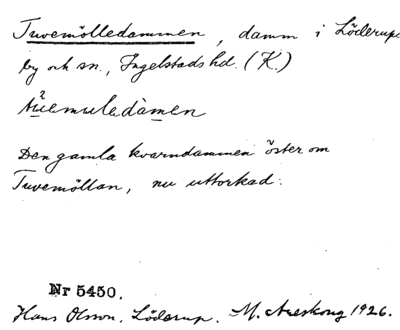 Tuvemölledammen, damm i Löderups
by och sn., Ingelstads hd. (K.)
Den gamla kvarndammen öster om
Tuvemöllan, nu uttorkad.
Nr 5450.
Hans Olsson, Löderup. M. Areskoug 1926.